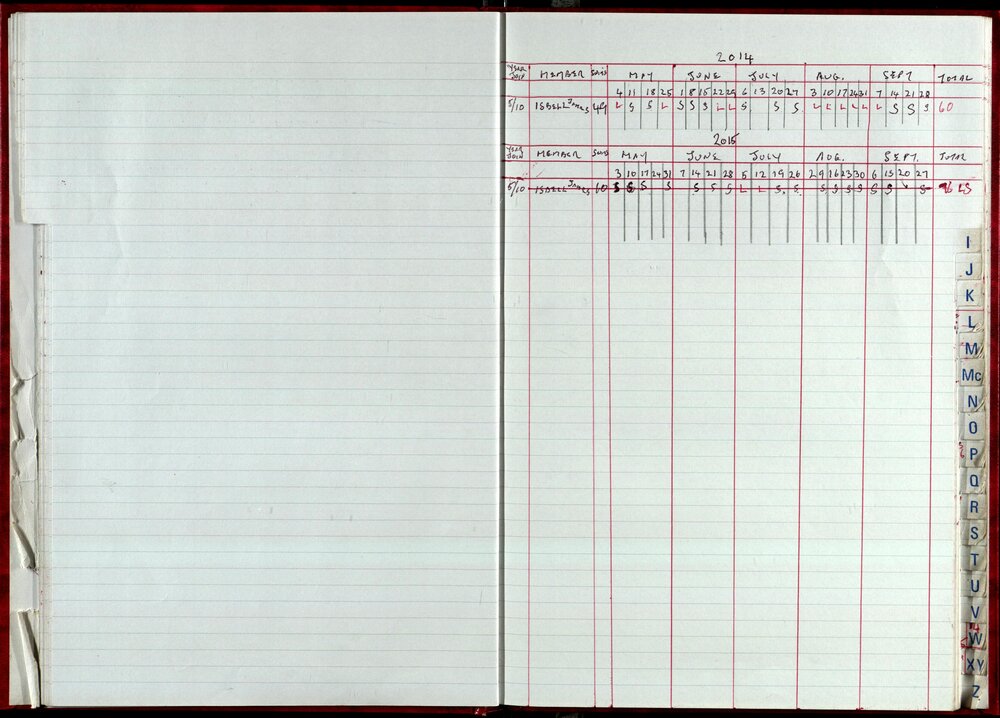 2014
YEAR JOIN MEMBER MAY JUNE JULY AUG. SEPT TOTAL
4 11 18 25 1 8 15 22 29 6 13 20 27 3 10 17 24 31 7 14 21 28
5/10 ISBELL James 49 L S S L S S S L L S S S L L L L L L S S S 60
2015
YEAR JOIN MEMBER MAY JUNE JULY AUG. SEPT. TOTAL
3 10 17 24 31 7 14 21 28 5 12 19 26 2 9 16 23 30 6 13 20 27
5/10 ISBELL James 60 S S S S S S S L L S S S S S S S S S
I
J
K
L
M
Mc
N
O
P
Q
R
S
T
U
V
W
XY
Z